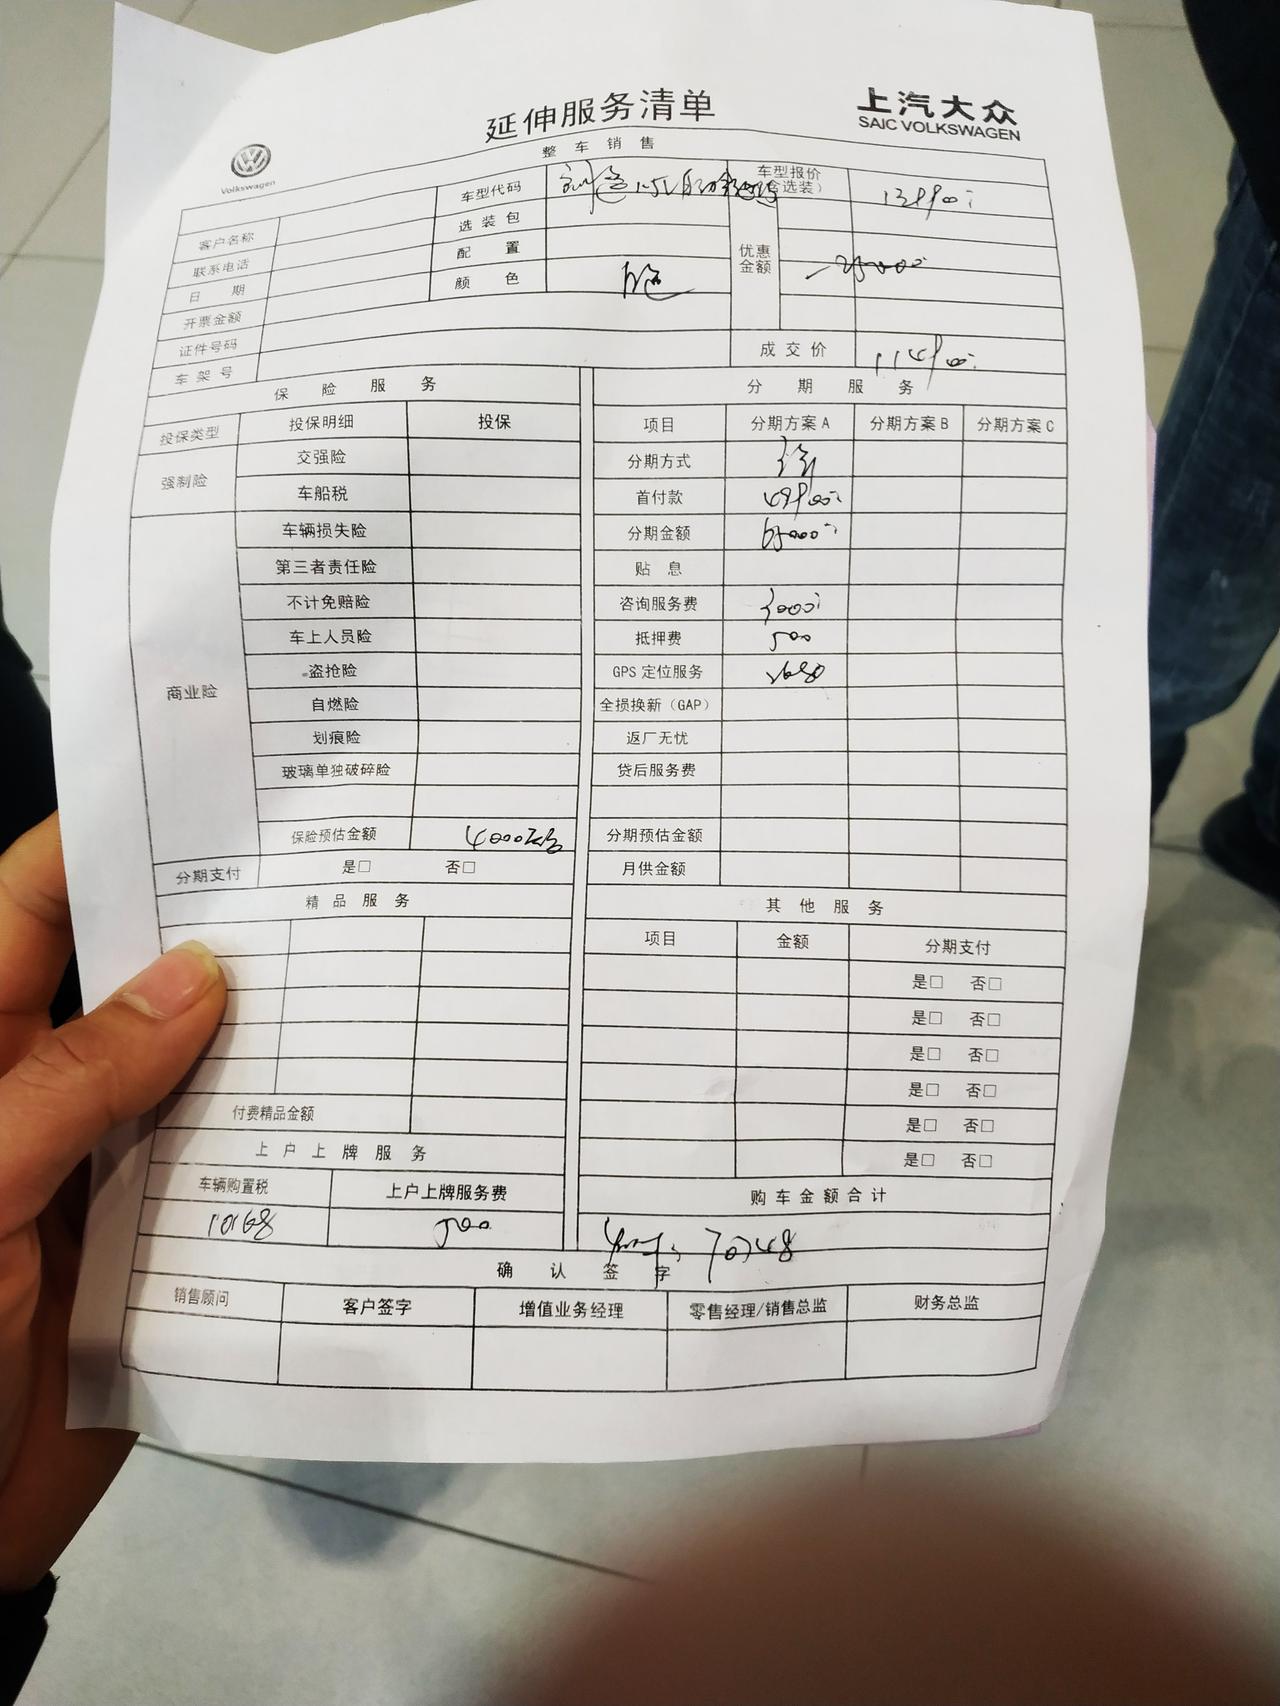 延伸服务清单
上汽大众
SAIC VOLKSWAGEN
Volkswagen
整车销售
客户名称 车型代码 1.5L自动 车型报价(含选装) 139900
联系电话 选装包 优惠金额 -25000
日期 配置
开票金额 颜色 白色
证件号码 成交价 114900
车架号
保险服务 分期服务
投保类型 投保明细 投保 项目 分期方案A 分期方案B 分期方案C
强制险 交强险 分期方式
车船税 首付款 49900
商业险 车辆损失险 分期金额 65000
第三者责任险 贴息
不计免赔险 咨询服务费 3000
车上人员险 抵押费 500
盗抢险 GPS定位服务 1680
自燃险 全损换新(GAP)
划痕险 返厂无忧
玻璃单独破碎险 贷后服务费
保险预估金额 4000左右 分期预估金额
分期支付 是□ 否□ 月供金额
精品服务 其他服务
项目 金额 分期支付
是□ 否□
是□ 否□
是□ 否□
是□ 否□
付费精品金额 是□ 否□
上户上牌服务 是□ 否□
车辆购置税 上户上牌服务费 购车金额合计
10168 500
确认签字
销售顾问 客户签字 增值业务经理 零售经理/销售总监 财务总监